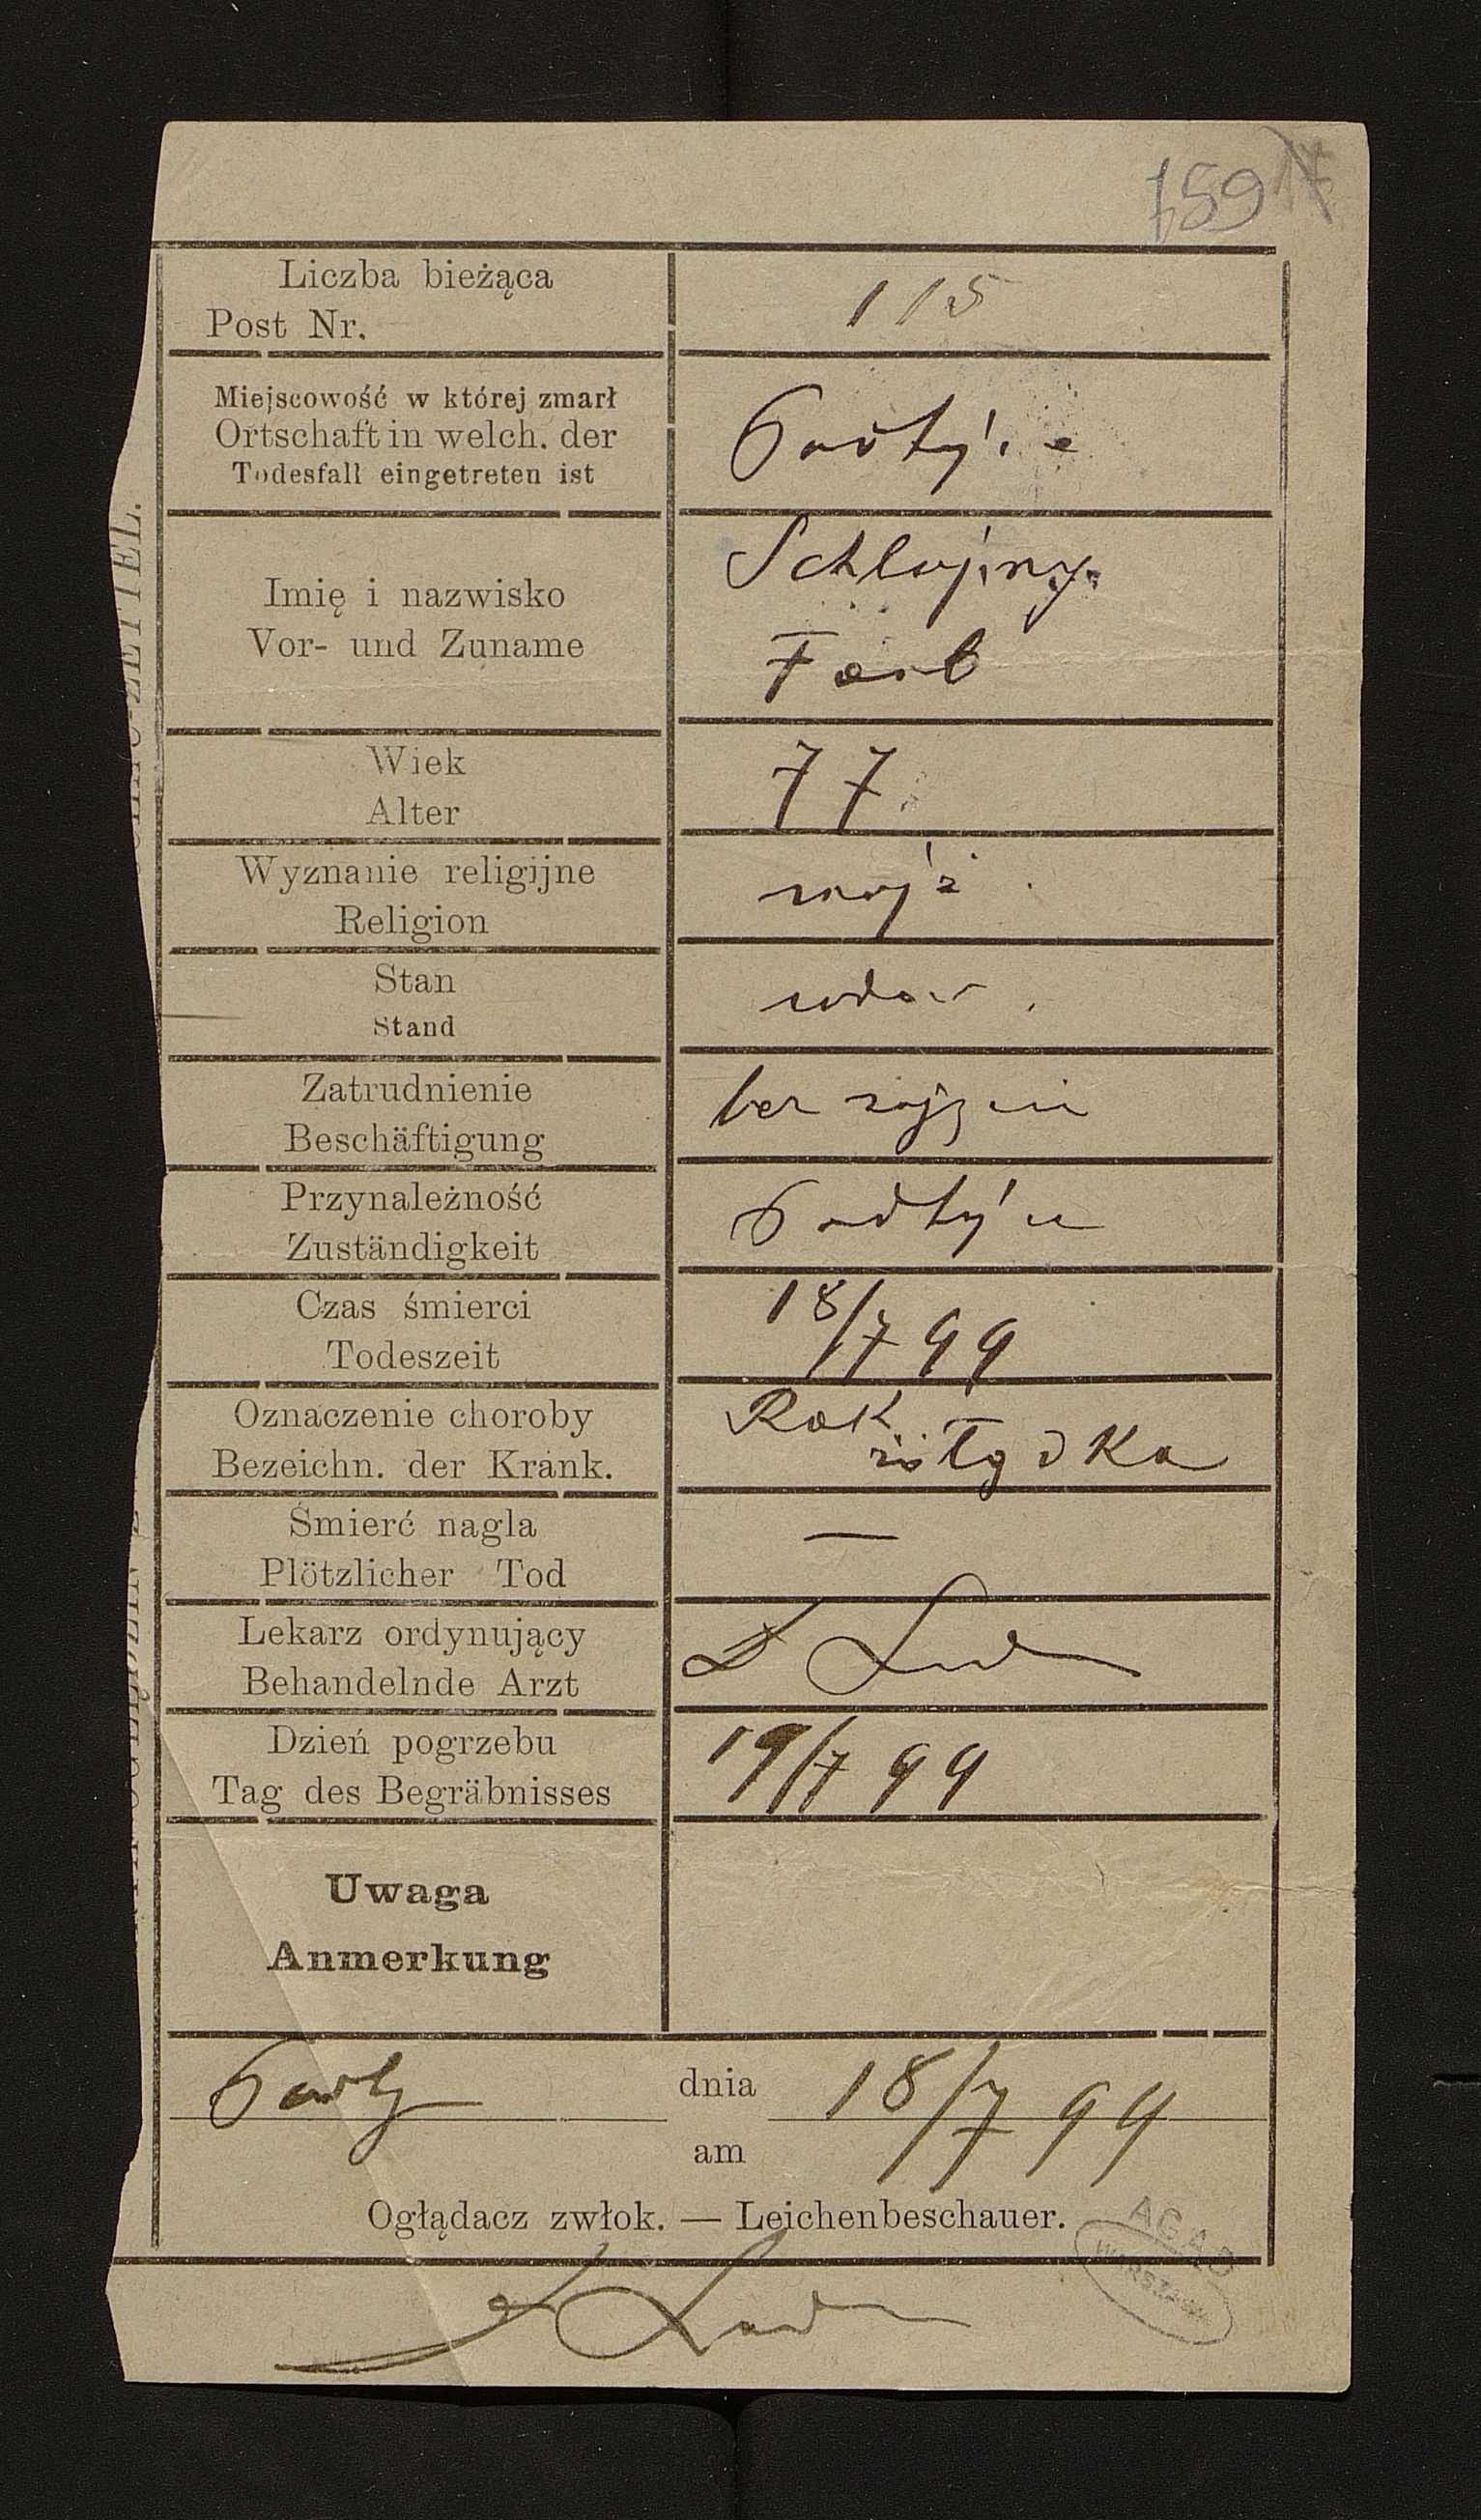 159
Liczba bieżąca
Post Nr.
115
Miejscowość w której zmarł
Ortschaft in welch. der
Todesfall eingetreten ist
Imię i nazwisko
Vor- und Zuname
Farb
Wiek
Alter
77
Wyznanie religijne
Religion
mojż
Stan
Stand
wdow.
Zatrudnienie
Beschäftigung
bez
Przynależność
Zuständigkeit
Czas śmierci
Todeszeit
18/7 99
Oznaczenie choroby
Bezeichn. der Krank.
Rak
żołądka
Śmierć nagla
Plötzlicher Tod
—
Lekarz ordynujący
Behandelnde Arzt
Dzień pogrzebu
Tag des Begräbnisses
19/7 99
Uwaga
Anmerkung
dnia
am
18/7 99
Oglądacz zwłok. — Leichenbeschauer.
AGAD
WARSZAWA
ZETTEL.